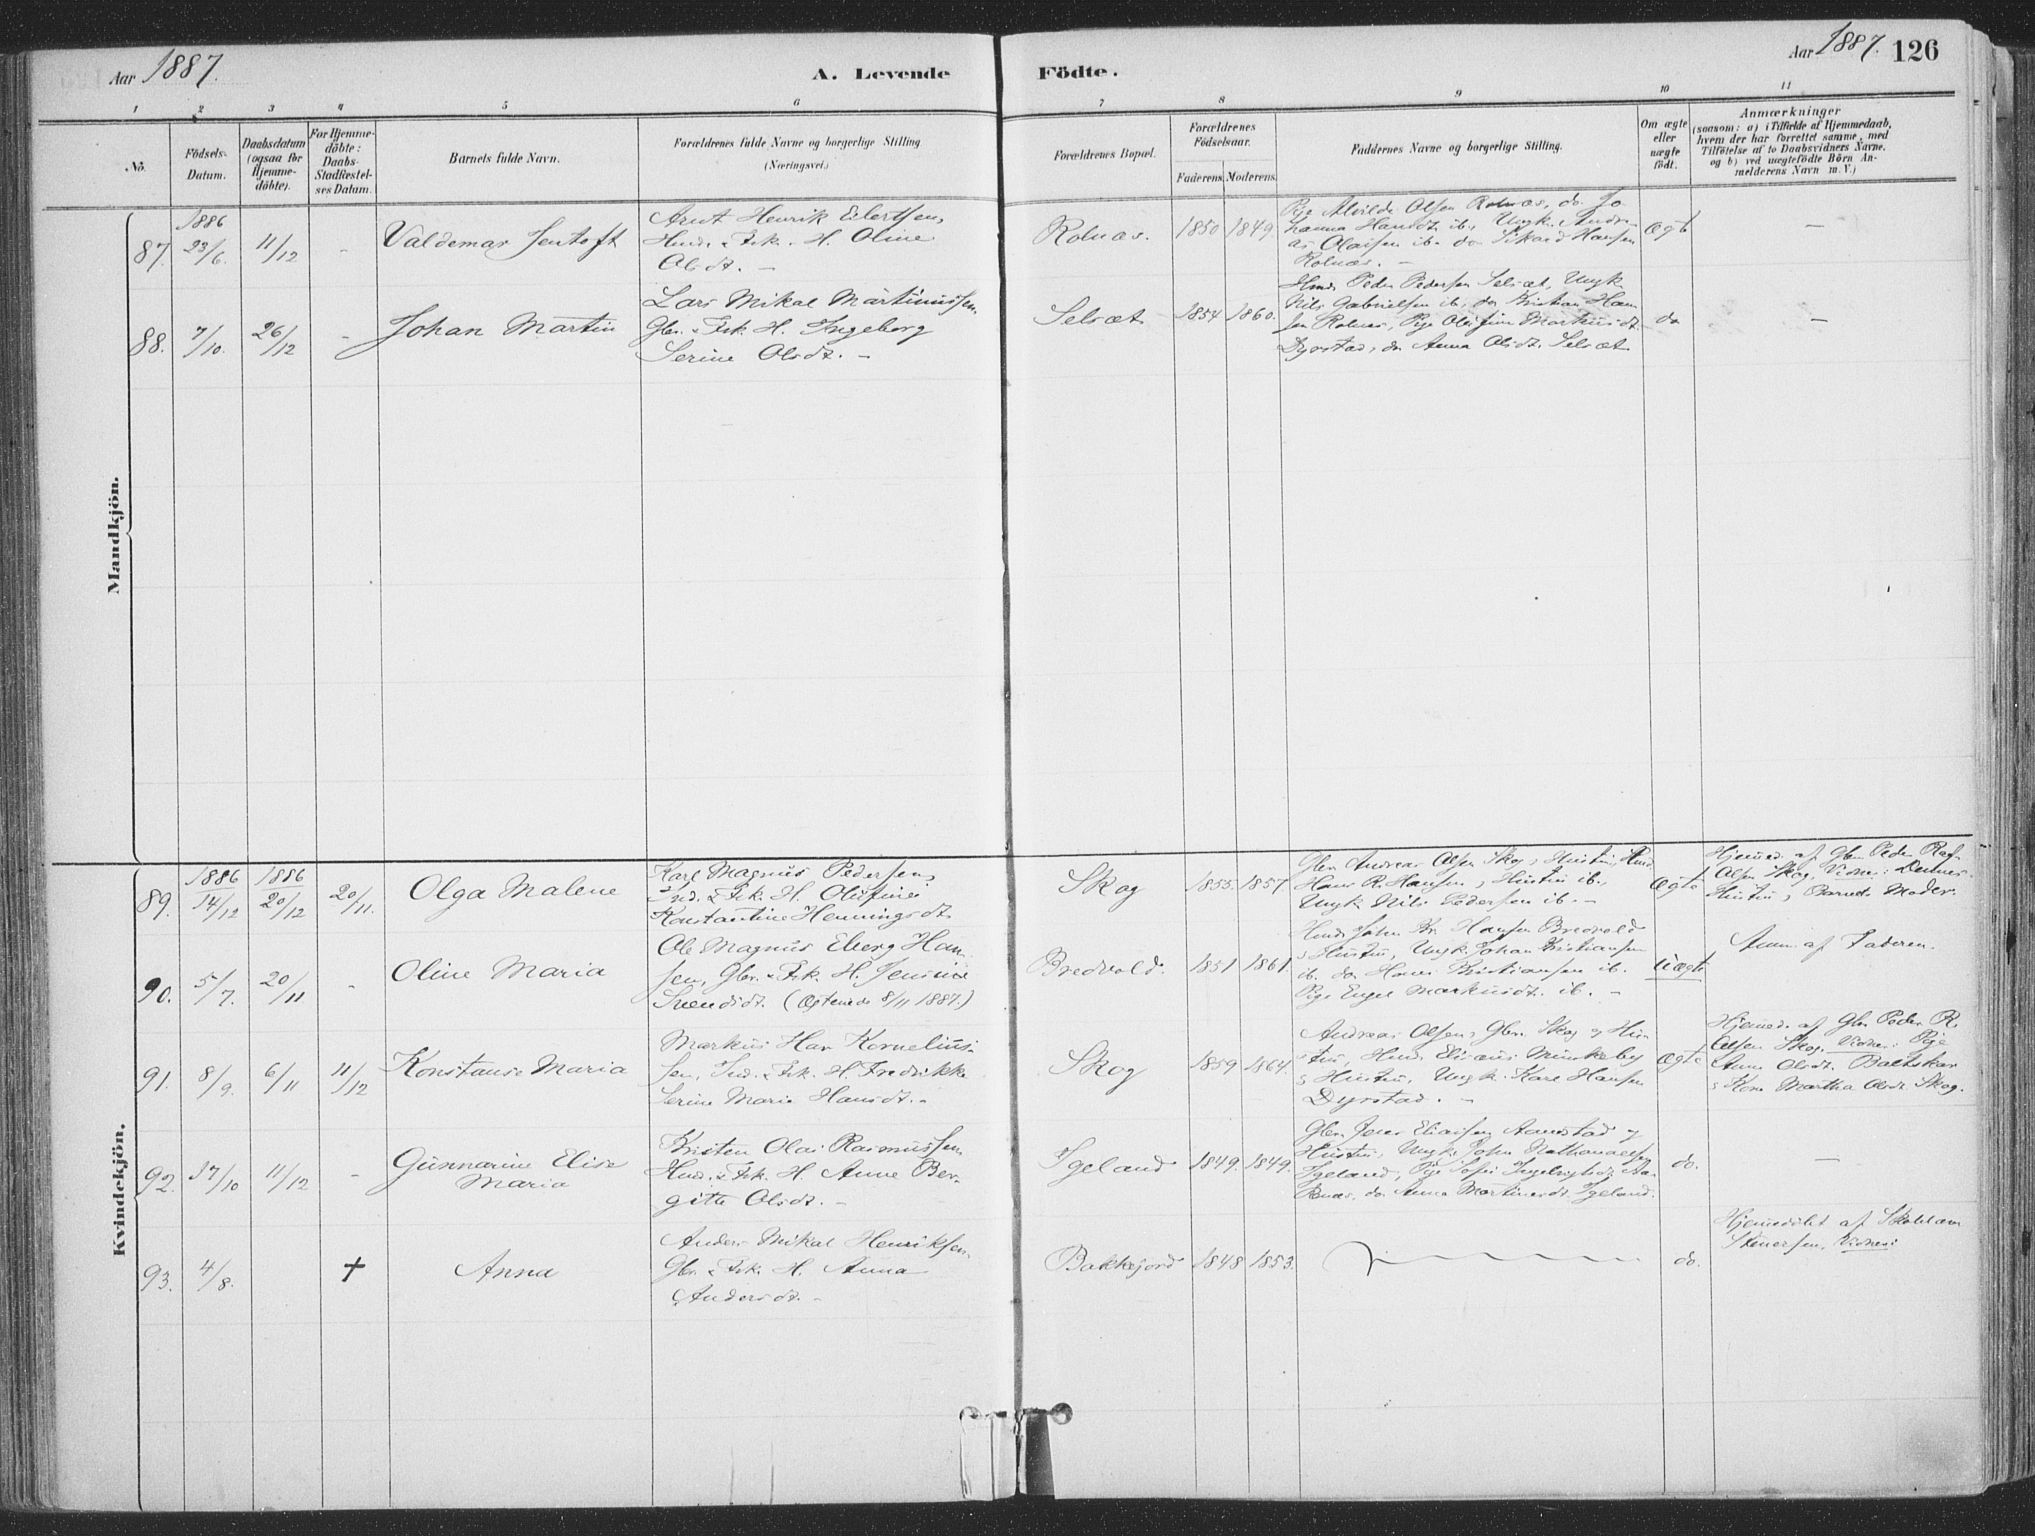 Aar 1887.
A. Levende Födte.
Aar 1887. 126
1 2 3 4 5 6 7 8 9 10 11
No.
Födsels-Datum.
Daabsdatum (ogsaa for Hjemmedöbte).
For Hjemmedöbte: Daabs-Stadfæstelses Datum.
Barnets fulde Navn.
Forældrenes fulde Navne og borgerlige Stilling
(Næringsvei.)
Forældrenes Bopæl.
Forældrenes Födselsaar.
Faderens. Moderens.
Faddernes Navne og borgerlige Stilling.
Om ægte eller uægte födt.
Anmærkninger
(saasom: a) i Tilfælde af Hjemmedaab,
hvem der har forrettet samme, med
Tilföielse af to Daabsvidners Navne,
og b) ved uægtefödte Börn Anmelderens Navn m. V.)
Mandkjön.
87.
1886
23/6.
11/12
-
Valdemar Jentoft
Arnt Henrik Eilertsen,
Hmd. & Fsk. H. Oline
Olsdt. -
Rolnæs.
1850 1849
Pige Alvilde Olsen Rolnæs, do. Jo
hanna Hansdt. ib., Ungk. Andre
as Olaisen ib. do Sikard Hansen
Rolnæs. -
Ægt
-
88.
7/10.
26/12
-
Johan Martin
Lars Mikal Martinussen
Gbr. & Fsk. H. Ingeborg
Serine Olsdt. -
Selsæt
1854 1860.
Hmd. Peder Pedersen Selsæt, Ungk
Nils Gabrielsen ib, do Kristian Han
sen Rolnæs, Pige Olufine Markusdt.
Dyrstad, do Anna Olsdt. Selsæt
do
-
Kvindekjön.
89.
1886
14/12
1886
20/12
20/11.
Olga Malene
Karl Magnus Pedersen,
Ind. & Fsk. H. Olufine
Konstantine Henningsdt.
Skog
1855. 1857.
Gbr. Andreas Olsen Skog, Hustru, Hmd.
Hans R. Hansen, Hustru ib.,
Ungk. Nils Pedersen ib. -
Ægte
Hjemd. af Gbr. Peder
Olsen Skog. Vidner:
Hustru, Barnets Moder.
90.
5/7.
20/11
-
Oline Maria
Ole Magnus Eberg Han
sen, Gbr. & Fsk. H. Jensine
Svendsdt. (Ægteviede 8/11 1887.)
Bredvold.
1851 1861.
Hmd. John Kr. Hansen Bredvold
& Hustru, Ungk. Johan Kristiansen
ib. do Hans Kristiansen ib.
Pige Engel Markusdt. ib. -
Uægte
Anm. af Faderen.
91.
8/9.
6/11
11/12
Konstanse Maria
Markus Han Kornelius-
sen, Ind. & Fsk. H. Fredrikke
Serine Marie Hansdt. -
Skog
1859 1864.
Andreas Olsen, Gbr. Skog og Hu-
stru, Hmd. Elisæus Minkeby
& Hustru, Ungk. Karl Hansen
Dyrstad. -
Ægte
Hjemd. af Gbr. Peder R.
Olsen Skog. Vidner: Pige
Anne Olsdt. Baltskar
& Kone Martha Olsdt. Skog.
92.
17/10
11/12
-
Gunnarine Elise
Maria
Kristen Olai Rasmussen
Hmd. & Fsk. H. Anne Ber-
gitte Olsdt. -
Igeland
1849. 1849.
Gbr. Jens Eliassen Aanstad og
Hustru, Ungk. John Nathanaelsen
Igeland, Pige Sofie
do Anna Martinusdt. Igeland.
do.
-
93.
4/8.
+
Anna
Anders Mikal Henriksen
Gbr. & Fsk. H. Anna
Andersdt. -
Bakkejord
1848 1853.
do.
Hjemdöbt af
Steuersen, Vidner: